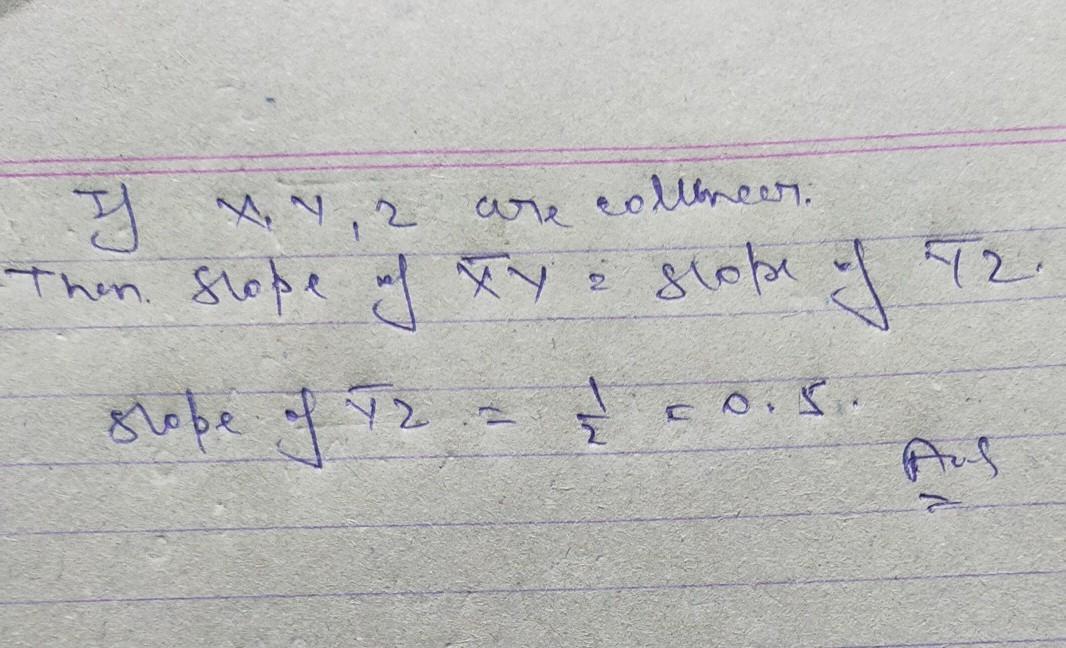 If X, Y, Z are collinear.
Then. Slope of X̅Y̅ = slope of Y̅Z.
slope of Y̅Z = 1/2 = 0.5.
Ans